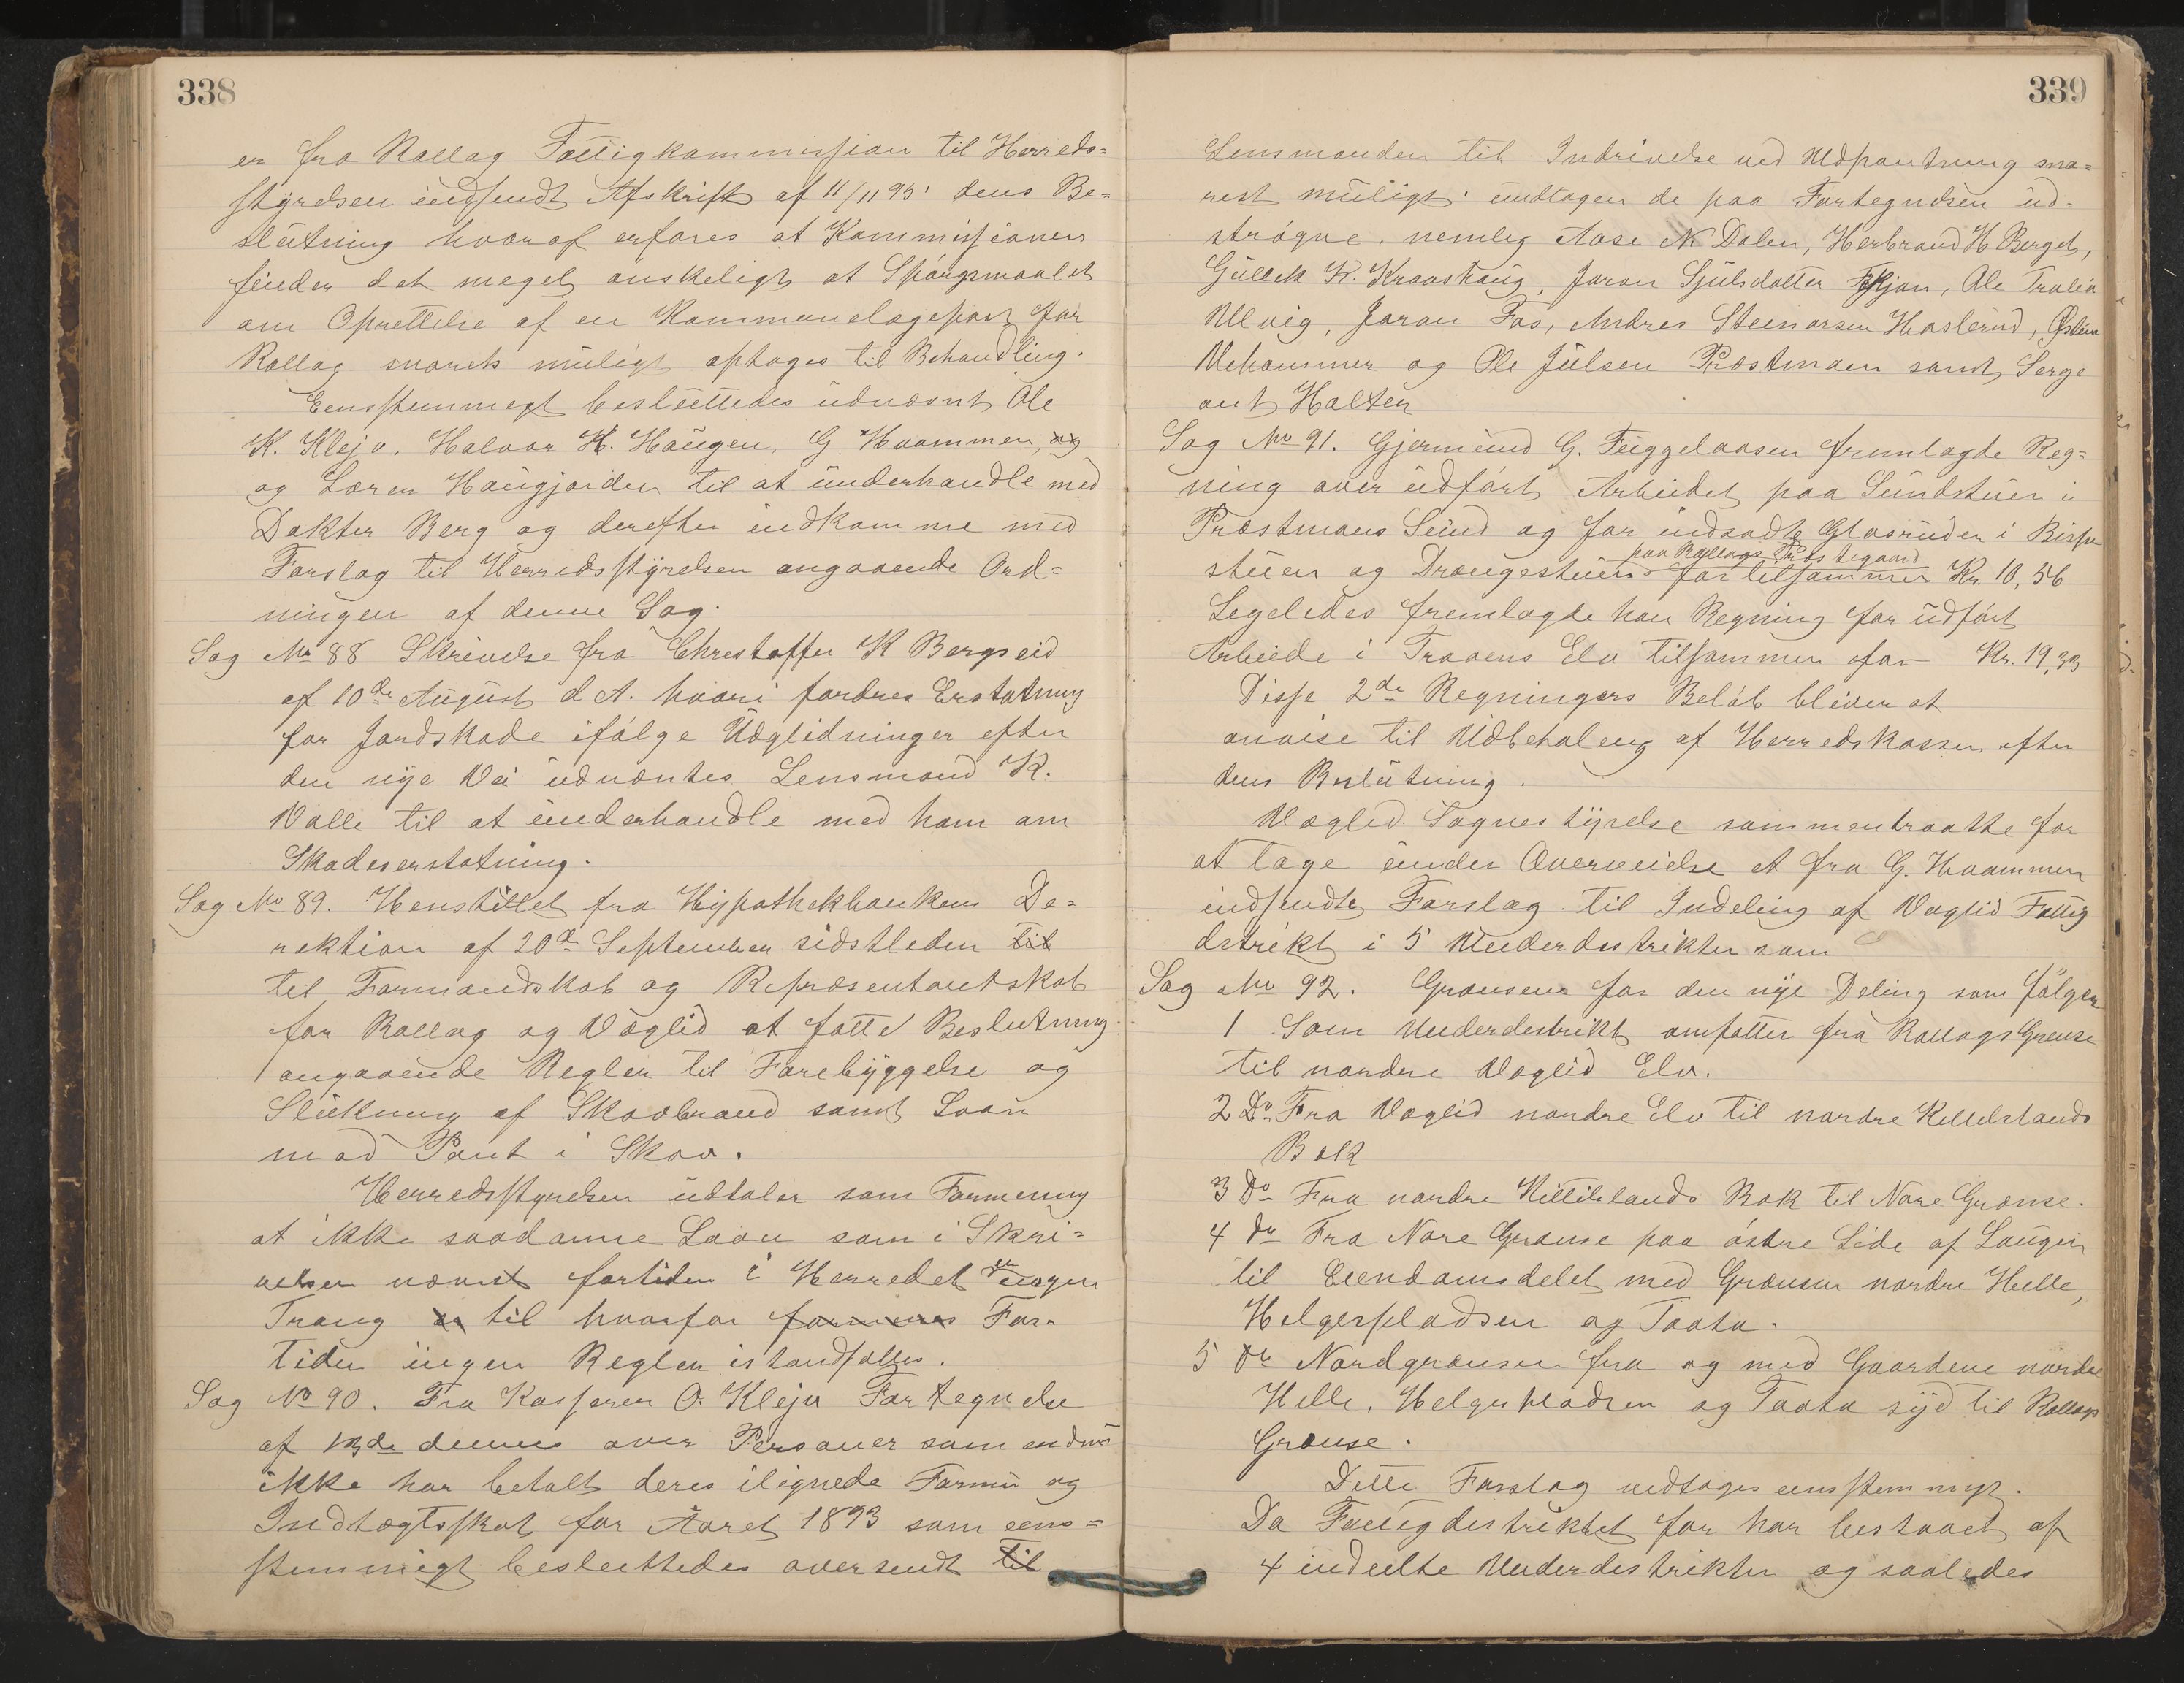 338
er fra Rollag Fattigkommission til Herreds=
styrelsen indsendt Afskrift af 11/11 95 dens Be=
slutning hvoraf erfares at Kommissionen
finder det meget ønskeligt at Spørgsmaalet
om Oprettelse af en Kommunelægepost for
Rollag snarest muligt optages til Behandling.
Eensstemmegt besluttedes udnævnt Ole
K. Klejv. Halvor H. Haugen, G. Hvammen, og
og Lærer Haugjorden til at underhandle med
Dokter Berg og derefter indkomme med
Forslag til Herredsstyrelsen angaaende Ord=
ningen af denne Sag.
Sag No 88 Skrivelse fra Christoffer K Bergseid
af 10de August d A. hvori fordres Erstatning
for Jordskade ifølge Udglidninger efter
den nye Vei udnævntes Lensmand K.
Valle til at underhandle med ham om
Skadeserstatning.
Sag No 89. Henstillet fra Hypothekbankens De=
rektion af 20de September sidstleden til
til Formandskab og Repræsentantskab
for Rollag og Væglid at fatte Beslutning
angaaende Regler til Forebyggelse og
Slukning af Skovbrand samt Laan
mod Pant i Skov.
Herredsstyrelsen udtaler som Formening
at ikke saadanne Laan som i Skri=
velsen nævnt fortiden i Herredet er ingen
Trang er til hvorfor formenes For-
tiden ingen Regler istandsættes.
Sag No 90. Fra Kasserer O. Klejv Fortegnelse
af 13de dennes over Personer som endnu
ikke har betalt deres ilignede Formu og
Indtægtsskat for Aaret 1893 som eens=
stemmigt besluttedes oversendt til
339
Lensmanden til Indrivelse ved Udpantning sna=
rest muligt undtagen de paa Fortegnelsen ud=
strøgne, nemlig Aase N Dalen, Herbrand H Berget,
Gullek K. Kraashaug, Joron Sjulsdatter Kjøn, Ole Tralia
Ulvig, Joran Fos, Andres Steinarsen Haslerud, Østein
Vehammer og Ole Julsen Præstmoen samt Serge
ant Halten
Sag No 91. Gjermund G. Fuggelaasen fremlagde Reg=
ning over udført Arbeidet paa Sundstuen i
Præstmoens Sund og for indsadte Glasruder i Bispe
paa Rollags Præstegaard
stuen og Drængestuen for tilsammen Kr. 10,56
Legeledes fremlagde han Regning for udført
Arbeide i Traaens Elv tilsammen for Kr. 19,33
Disse 2de Regningers Beløb bliver at
anvise til Udbetaling af Herredskassen efter
dens Beslutning.
Væglid Sognestyrelse sammentraatte for
at tage under Overveielse et fra G. Hvammen
indsendte Forslag til Indeling af Væglid Fattig
distrikt i 5 Underdistrikter som
Sag No 92. Grænsene for den nye Deling som følger
1 Som Underdestrikt omfatter fra Rollags Grense
til nordre Væglid Elv.
2 Do Fra Væglid nordre Elv til nordre Kittilslands
Bæk
3 Do Fra nordre Kittilslands Bæk til Nore Grænse.
4 do Fra Nore Grænse paa østre Side af Laugen
til Eiendomsdelet med Grænsen nordre Helle,
Helgerpladsen og Taata.
5 do Nordgrænsen fra og med Gaardene nordre
Helle, Helgerpladsen og Taata syd til Rollags
Grænse.
Dette Forslag vedtoges eensstemmigt.
Da Fattigdestriktet før har bestaaet af
4 indeelte Underdistrikter og saaledes